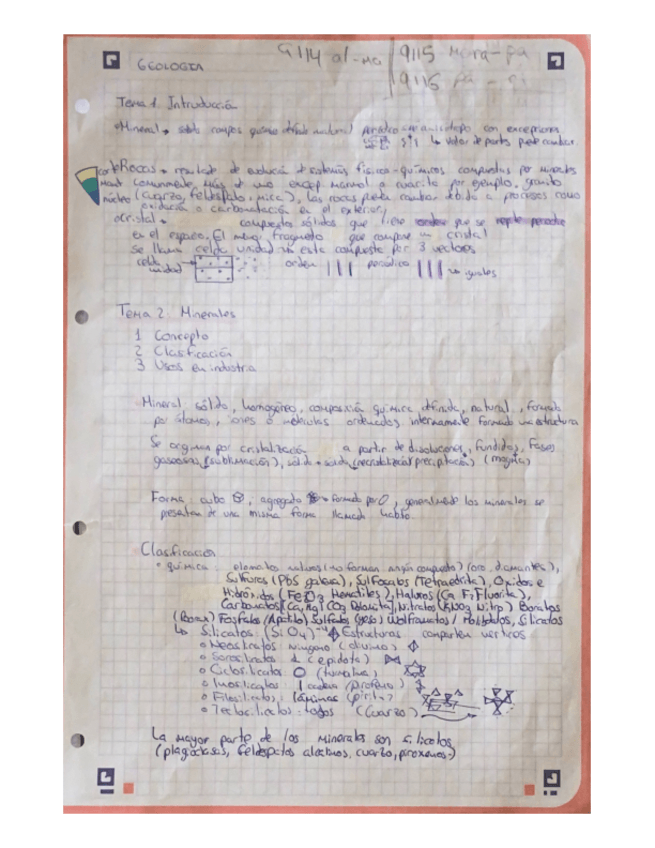 GEOLOGIA
9114 al-mo 9115 mora-pa
9116 pa - pi
Tema 1. Introducción
Mineral → solido compos química definida natural periódico con excepciones
↳ valor de partes puede cambiar.
corte Rocas → resultado de evolución de sistemas físico-químicos compuestas por minerales
mant comunmente, más de uno excep marmol o cuarcita por ejemplo, granito
núcleo (cuarzo, feldespato, mica), las rocas puede cambiar debido a procesos como
oxidación o carbonatación en el exterior,
cristal → compuestos sólidos que tiene orden que se repite periodica
en el espacio. El menor fragmento que compone un cristal
se llama celda unidad esta compuesta por 3 vectores
celda unidad
orden periódico ↳ iguales
Tema 2 Minerales
1 Concepto
2 Clasificación
3 Usos en industria
Mineral sólido, homogéneo, composición química definida, natural, formado
por átomos, iones o moléculas ordenados, internamente formado una estructura
Se originan por cristalización a partir de disoluciones, fundidos, fases
gaseosas (sublimación), sólido → solido (recristalización precipitación) (magma)
Forma: cubo, agregado → formado por, generalmente los minerales se
presentan de una misma forma llamada habito.
Clasificación
• química: elementos nativos (no forman ningún compuesto) (oro, diamantes),
Sulfuros (PbS galena), Sulfosales (Tetraedrita), Oxidos e
Hidróxidos (Fe2O3 Hematites), Haluros (Ca F2 Fluorita),
Carbonatos (Ca, Mg) (CO3 Dolomita), Nitratos (KNO3 Nitro) Boratos
(Borax) Fosfatos (Apatito) Sulfatos (yeso) Wolframatos / Molibdatos, Silicatos
↳ Silicatos: (SiO4)-4 Estructuras comparten vertices
◦ Nesosilicatos: ninguno (olivino)
◦ Sorosilicatos 1 (epidota)
◦ Ciclosilicatos: (turmalina)
◦ Inosilicatos
◦ Filosilicatos: láminas
◦ Tectosilicatos: todos (cuarzo)
La mayor parte de los minerales son silicatos
(plagioclasas, feldespatos alcalinos, cuarzo, piroxenos.)